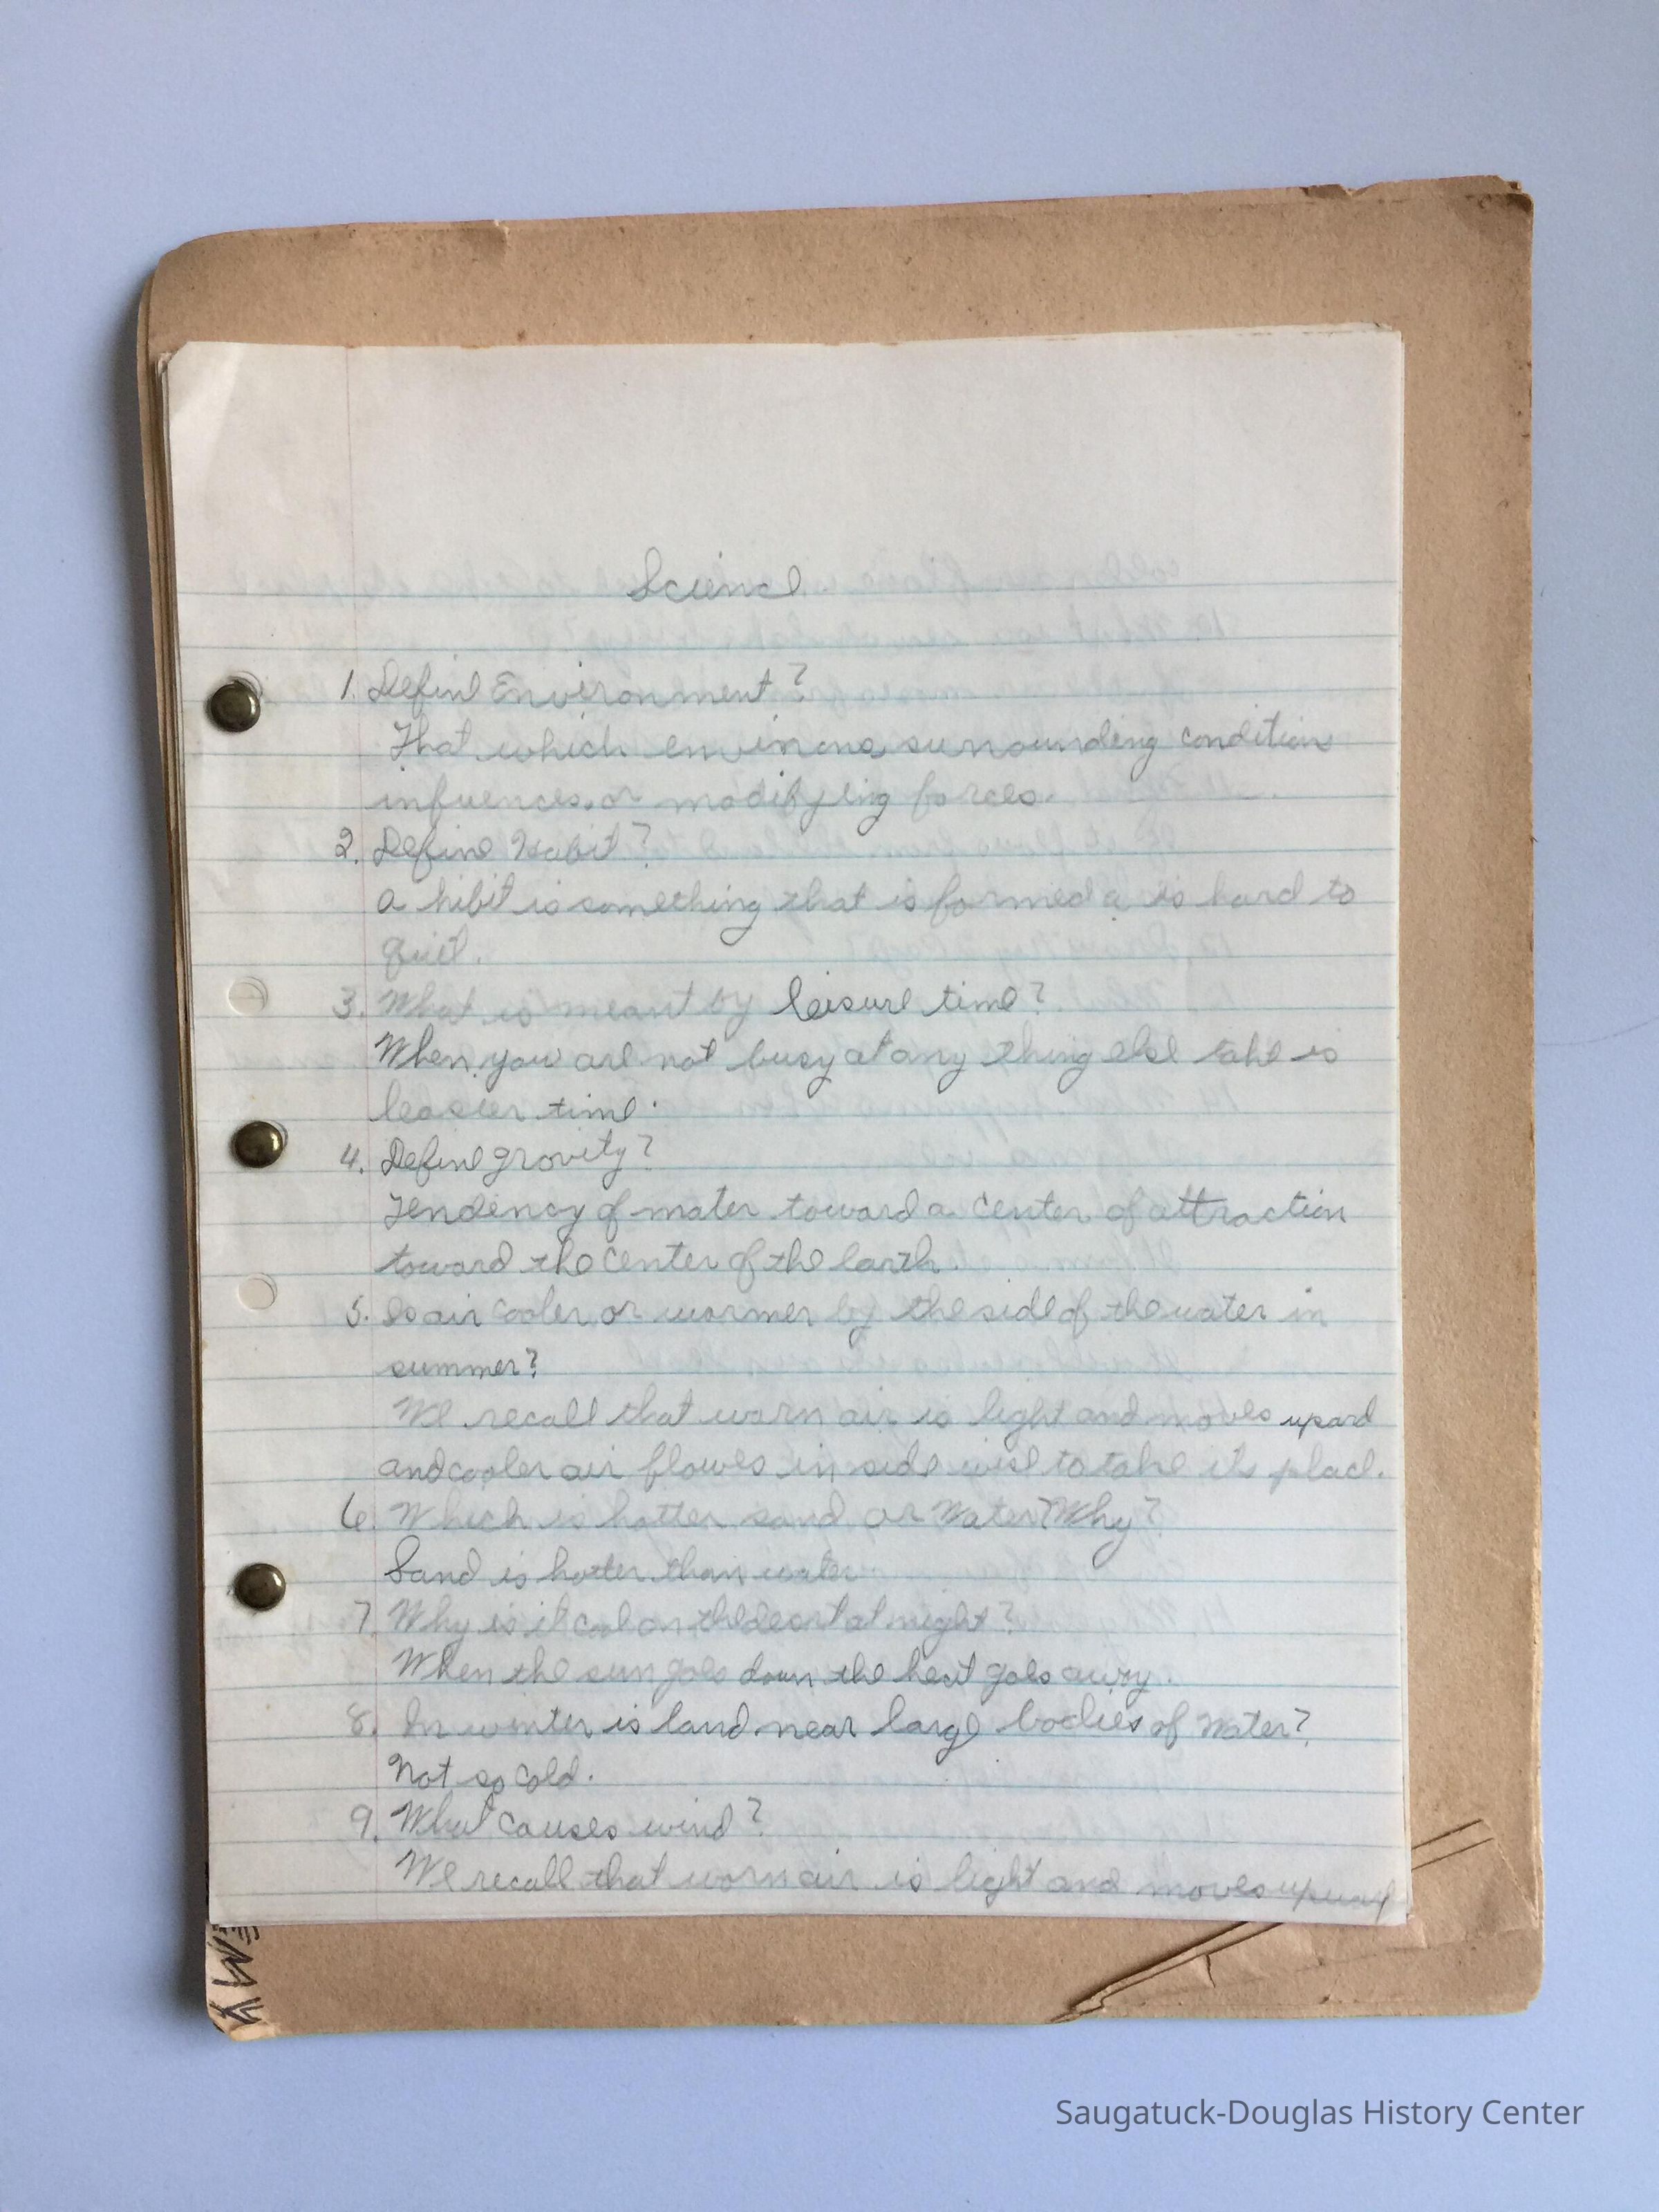 Science
1. Define Environment?
That which environs, surrounding condition
infuences, or modifying forces.
2. Define Habit?
a hibit is something that is formed a is hard to
quit.
3. What is meant by leisure time?
When you are not busy at any thing else taht is
leasier time.
4. Define grovity?
Tendency of mater toward a center of attraction
toward the center of the earth.
5. Is air cooler or warmer by the side of the water in
summer?
We recall that warn air is light and moves upard
and cooler air flowes in side wise to take its place.
6. Which is hotter sand or Water? Why?
Sand is hotter than water
7. Why is it cool on the desrt at night?
When the sun goes down the heat goes away.
8. In winter is land near large bodies of Water?
Not so cold.
9. What causes wind?
We recall that warn air is light and moves upward
Saugatuck-Douglas History Center